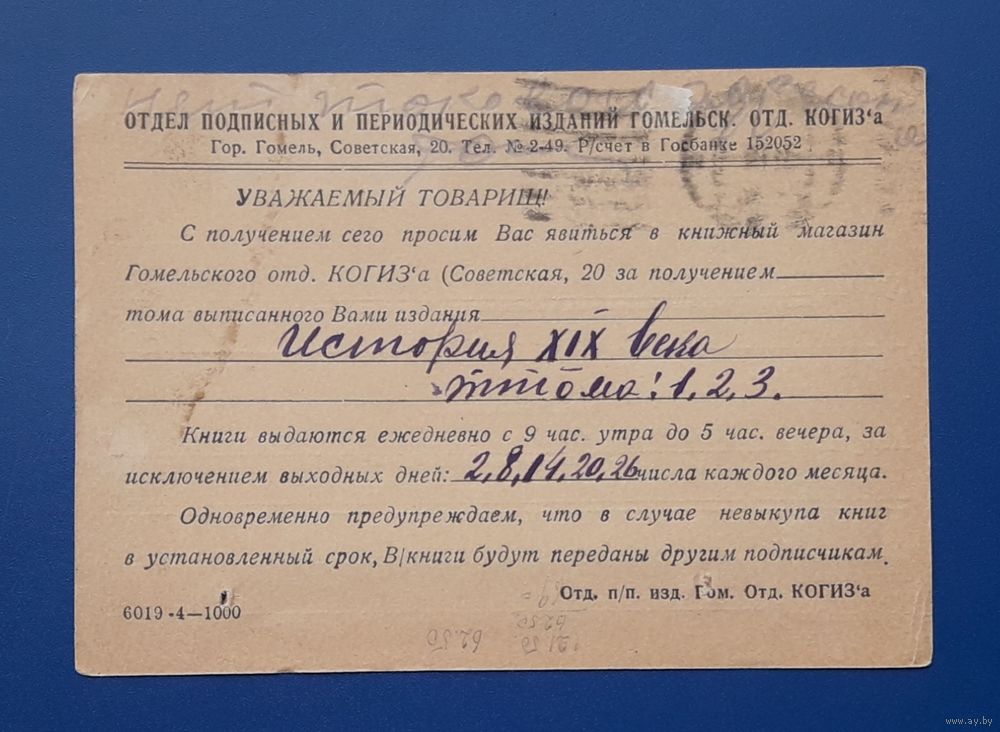 ОТДЕЛ ПОДПИСНЫХ И ПЕРИОДИЧЕСКИХ ИЗДАНИЙ ГОМЕЛЬСК. ОТД. КОГИЗ‘а
Гор. Гомель, Советская, 20. Тел. № 2-49. Р/счет в Госбанке 152052
УВАЖАЕМЫЙ ТОВАРИЩ!
С получением сего просим Вас явиться в книжный магазин
Гомельского отд. КОГИЗ‘а (Советская, 20 за получением
тома выписанного Вами издания
История XIX века
тома: 1, 2, 3.
Книги выдаются ежедневно с 9 час. утра до 5 час. вечера, за
исключением выходных дней: 2, 8, 14, 20, 26 числа каждого месяца.
Одновременно предупреждаем, что в случае невыкупа книг
в установленный срок, В/книги будут переданы другим подписчикам.
Отд. п/п. изд. Гом. Отд. КОГИЗ‘а
6019-4—1000
62.50
62.50
121.50
www.ay.by